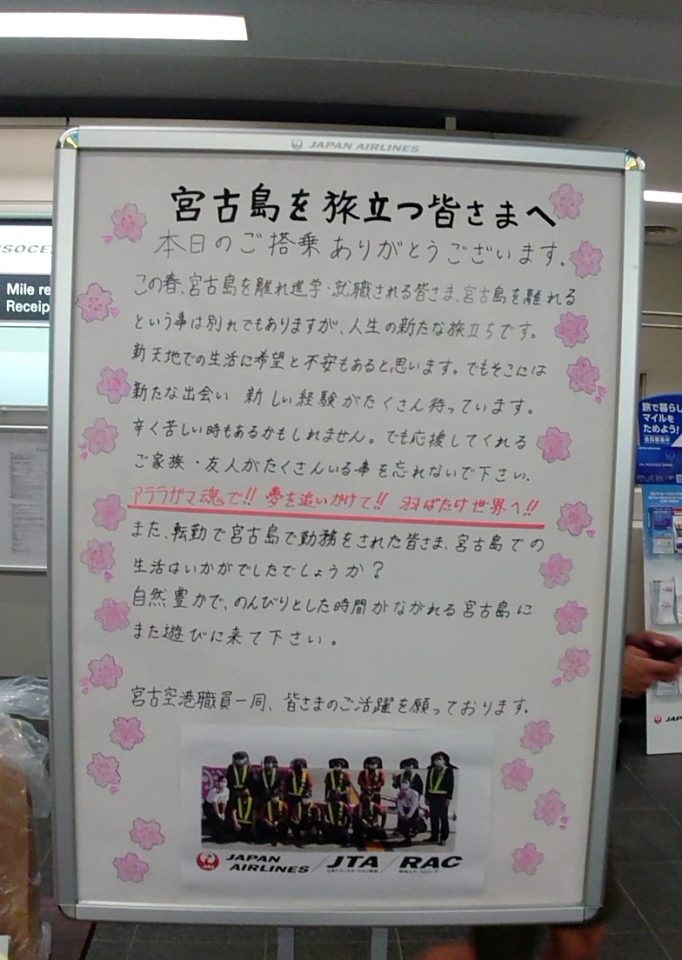 JAPAN AIRLINES
宮古島を旅立つ皆さまへ
本日のご搭乗ありがとうございます。
この春、宮古島を離れ進学・就職される皆さま、宮古島を離れる
という事は別れでもありますが、人生の新たな旅立ちです。
新天地での生活に希望と不安もあると思います。でもそこには
新たな出会い 新しい経験がたくさん待っています。
辛く苦しい時もあるかもしれません。でも応援してくれる
ご家族・友人がたくさんいる事を忘れないで下さい。
アララガマ魂で!! 夢を追いかけて!! 羽ばたけ世界へ!!
また、転勤で宮古島で勤務をされた皆さま、宮古島での
生活はいかがでしたでしょうか?
自然豊かで、のんびりとした時間がながれる宮古島に
また遊びに来て下さい。
宮古空港職員一同、皆さまのご活躍を願っております。
JAPAN AIRLINES / JTA / RAC
Mile re
Receip
旅で暮らし
マイルを
ためよう!